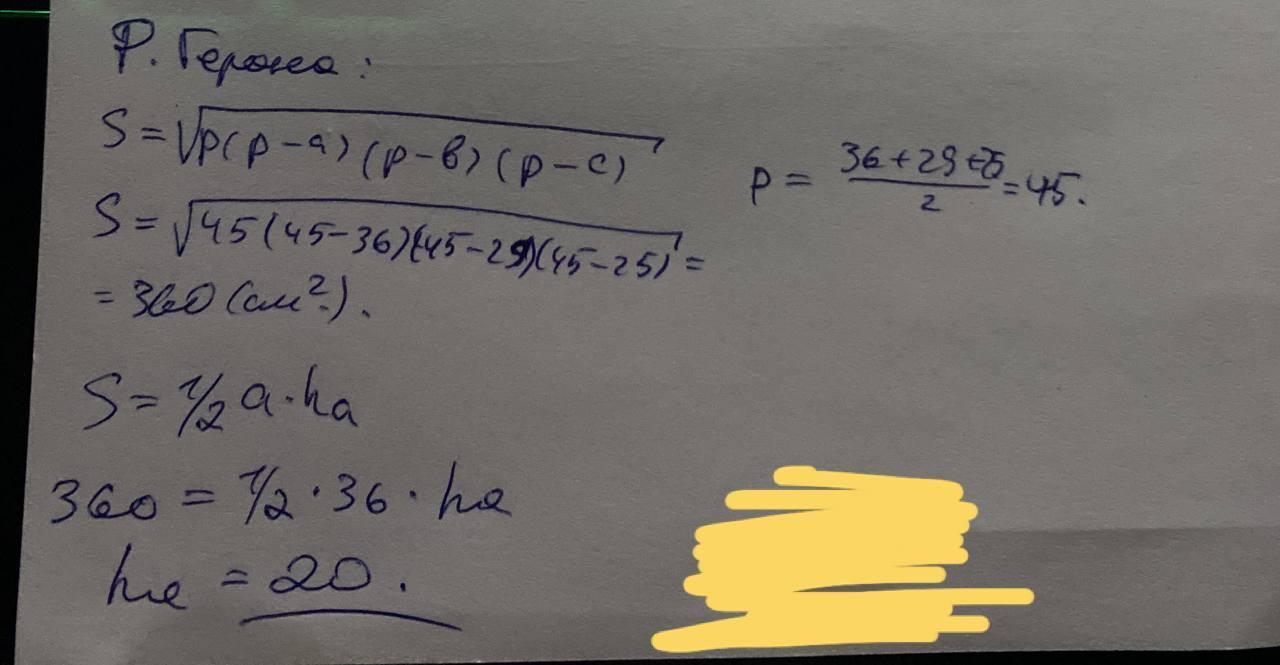 Р. Герона:
S = √p(p-a)(p-в)(p-c)
p = 36+29+25/2 = 45.
S = √45(45-36)(45-29)(45-25) =
= 360 (см²).
S = 1/2 a·ha
360 = 1/2 · 36 · ha
ha = 20.